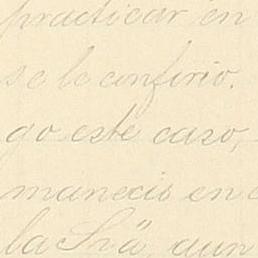 practicar en
se le confirio.
go este caso,
manecio en
la Srā, aun